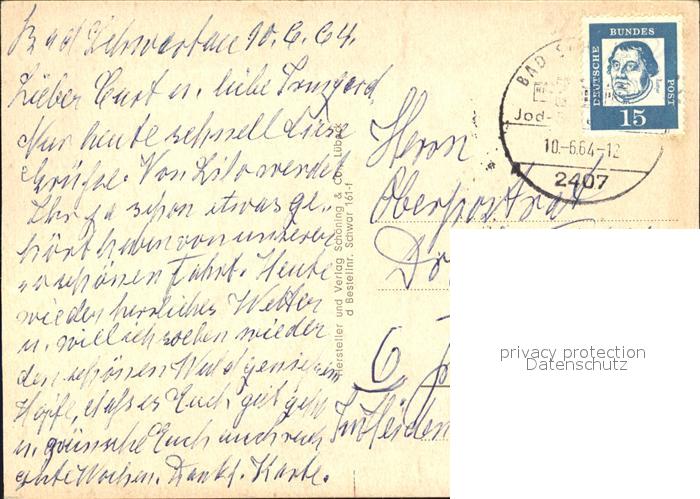 Bad Schwartau 10.6.64.
Lieber Curt u. liebe Irmgard,
Nur heute schnell liebe
Grüße. Von Lilo werdet
Ihr ja schon etwas ge-
hört haben von unserer
so schönen Fahrt. Heute
wieder herrliches Wetter
u. will ich soeben wieder
den schönen Wald geniessen
Hoffe, daß es Euch gut geht
u. wünsche Euch noch
gute Wochen. Dank f. Karte.
Hersteller und Verlag Schöning & Co., Lübeck
d Bestellnr. Schwar 161-f
DEUTSCHE BUNDES POST
Luther
15
BAD
Jod-
10.-6.64-12
2407
Herrn
Oberpostrat
Dr
6
privacy protection
Datenschutz